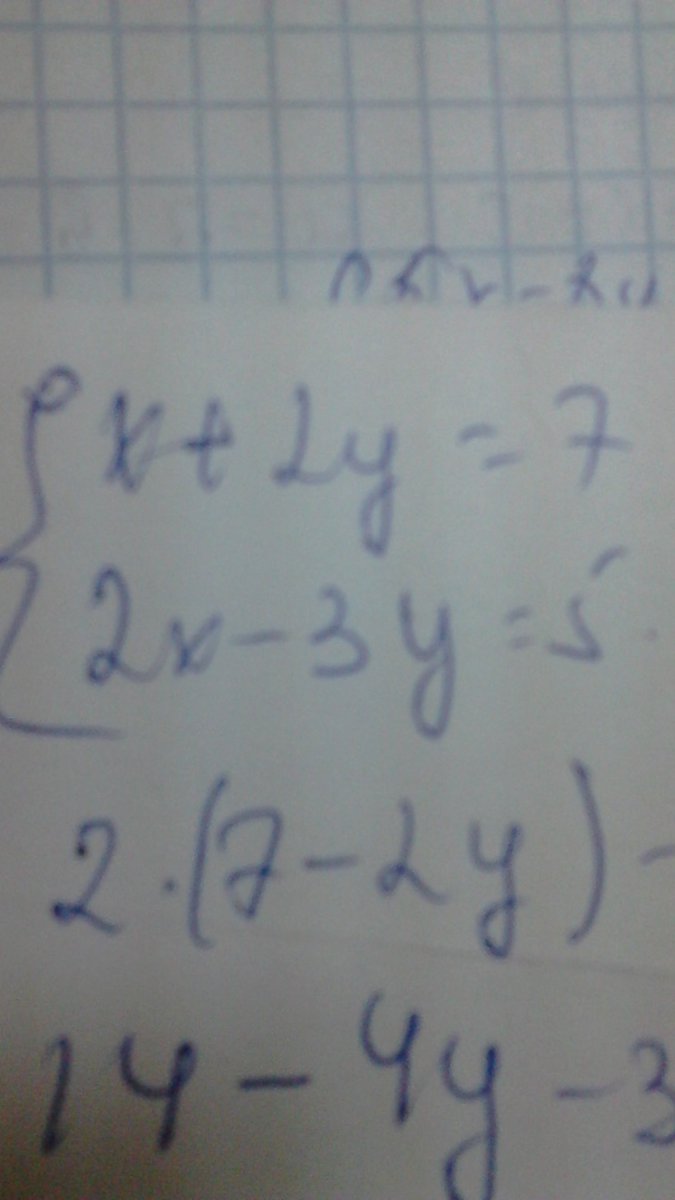 x + 2y = 7
2x - 3y = 5
2 · (7 - 2y) -
14 - 4y - 3